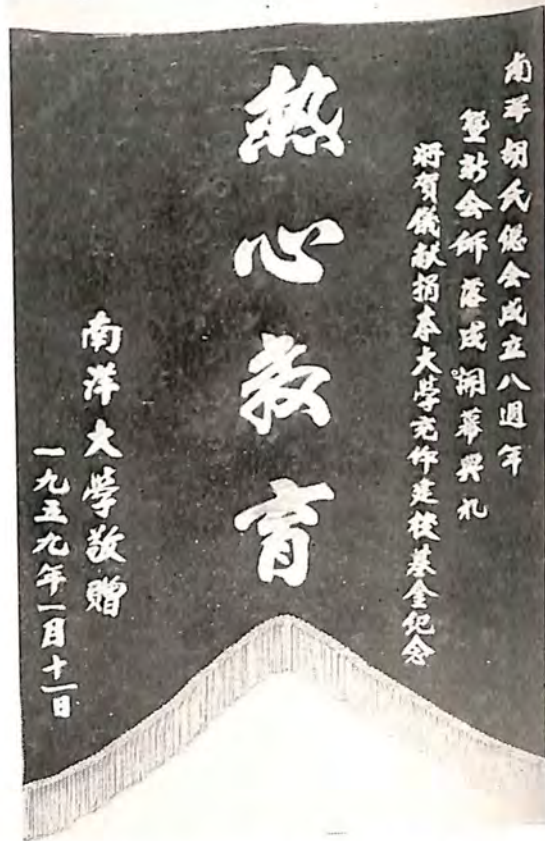 南洋胡氏總会成立八週年
暨新会所落成開幕典礼
將賀儀献捐本大學充作建校基金纪念
熱心教育
南洋大學敬贈
一九五九年一月十一日